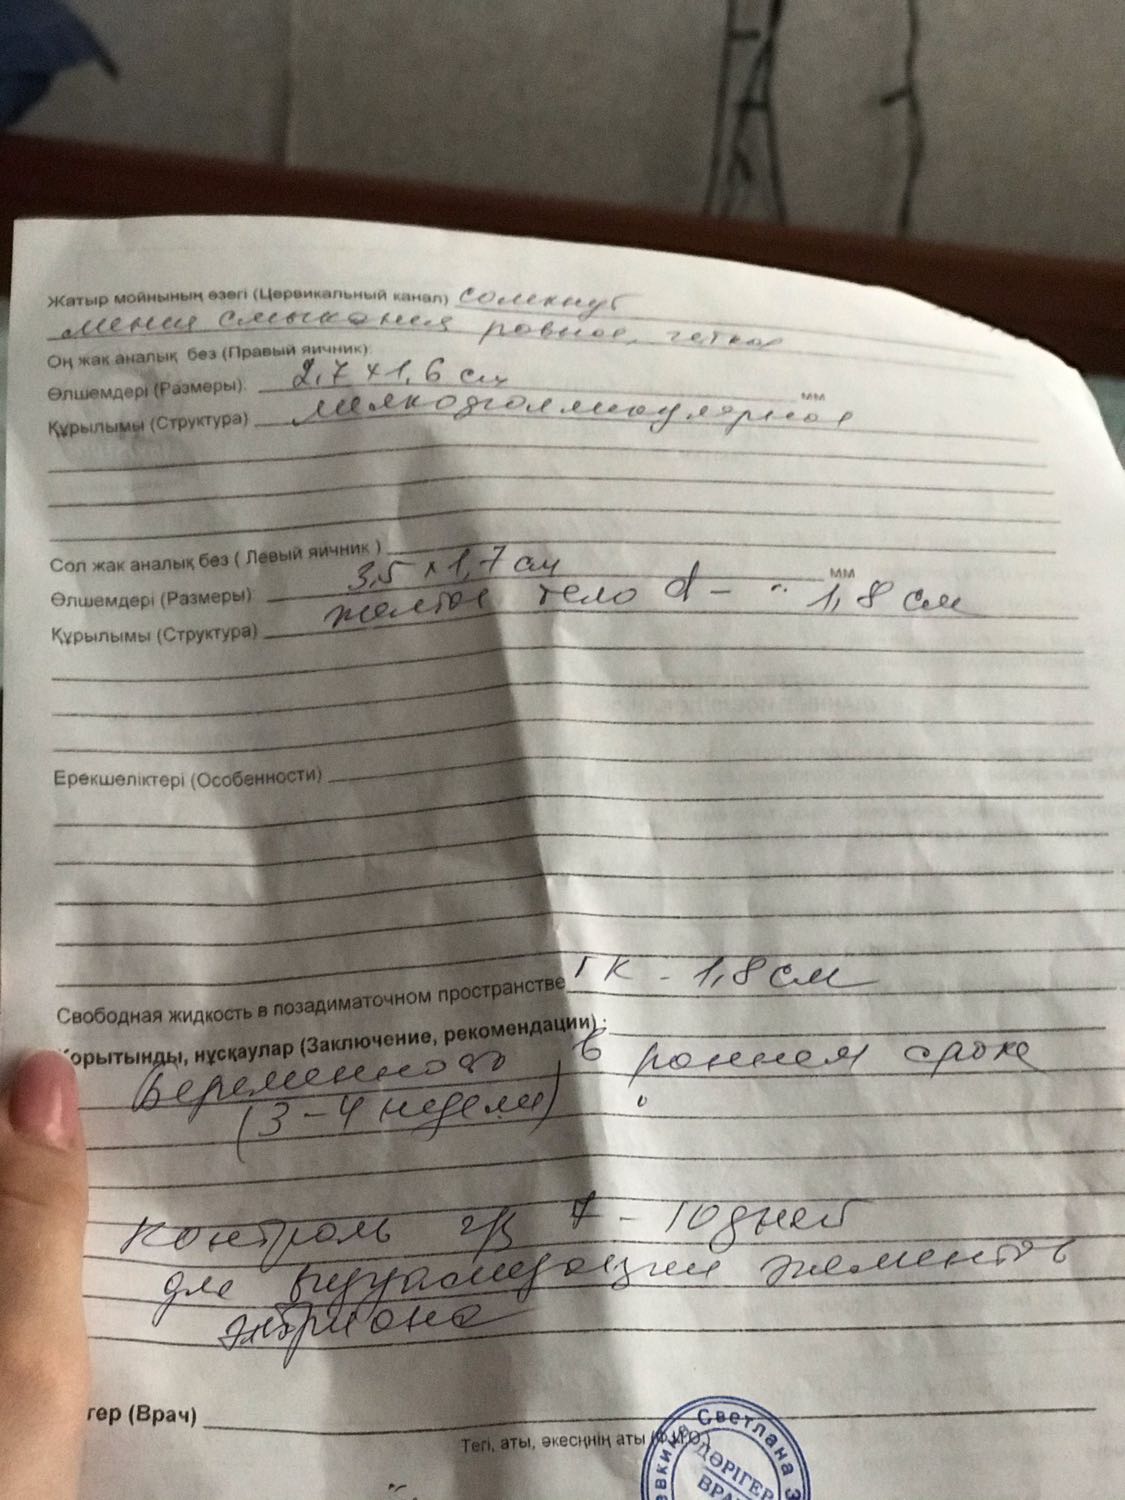 Жатыр мойнының өзегі (Цервикальный канал) сомкнут
линия смыкания ровное, четкое
Оң жақ аналық без (Правый яичник):
Өлшемдері (Размеры): 2,7 х 1,6 см мм
Құрылымы (Структура) мелкофолликулярное
Сол жақ аналық без ( Левый яичник )
Өлшемдері (Размеры) 3,5 х 1,7 см мм
Құрылымы (Структура) желтое тело d - 1,8 см
Ерекшеліктері (Особенности)
Свободная жидкость в позадиматочном пространстве к - 1,8 см
Қорытынды, нұсқаулар (Заключение, рекомендации) :
Беременность в раннем сроке
(3-4 недели)
Контроль ч/з 7 - 10 дней
для визуализации элементов
эмбриона
гер (Врач)
Тегі, аты, әкесңнің аты (Ф.И.О.)
евкина Светлана З
ДӘРІГЕР
ВРА